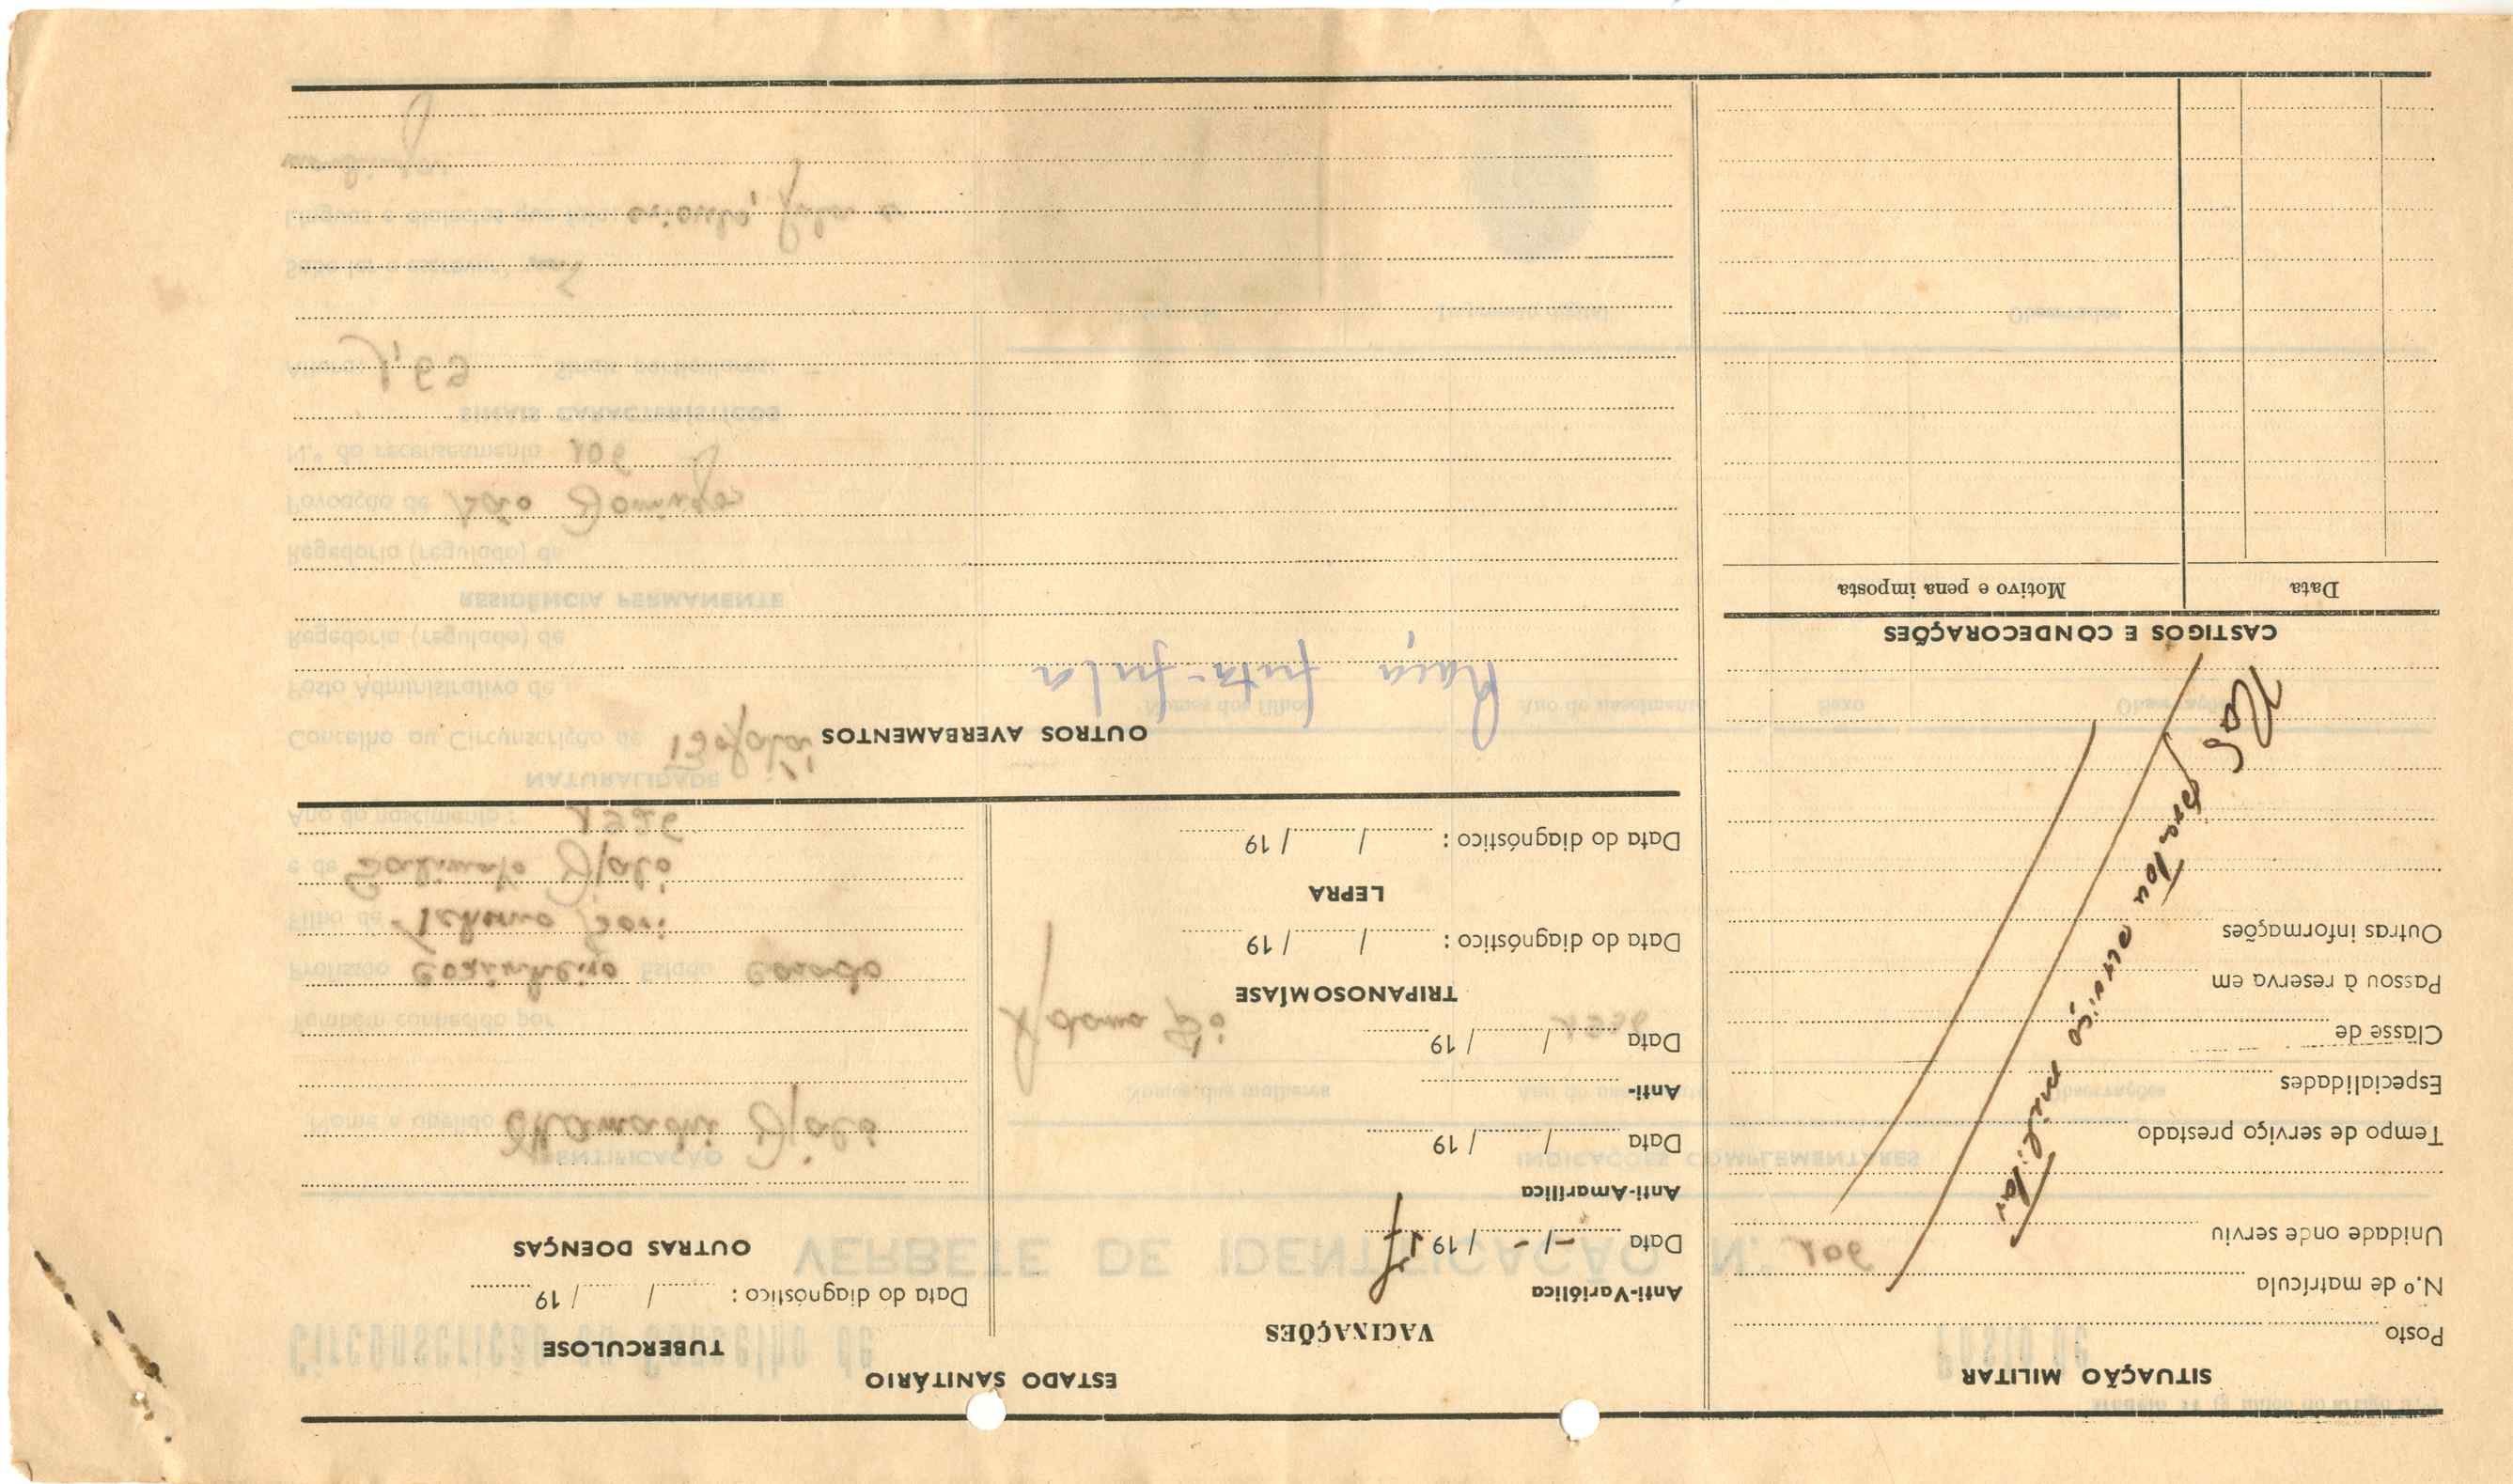 SITUAÇÃO MILITAR
Posto
N.º de matrícula
Unidade onde serviu
Tempo de serviço prestado
Especialidades
Classe de
Passou à reserva em
Outras informações
Não prestou serviço militar
CASTIGOS E CONDECORAÇÕES
Data Motivo e pena imposta
ESTADO SANITÁRIO
VACINAÇÕES
Anti-Variólica
Data - / - / 19
Anti-Amarílica
Data / / 19
Anti-
Data / / 19
TRIPANOSOMÍASE
Data do diagnóstico : / / 19
LEPRA
Data do diagnóstico : / / 19
TUBERCULOSE
Data do diagnóstico : / / 19
OUTRAS DOENÇAS
OUTROS AVERBAMENTOS
Raça futa-fula